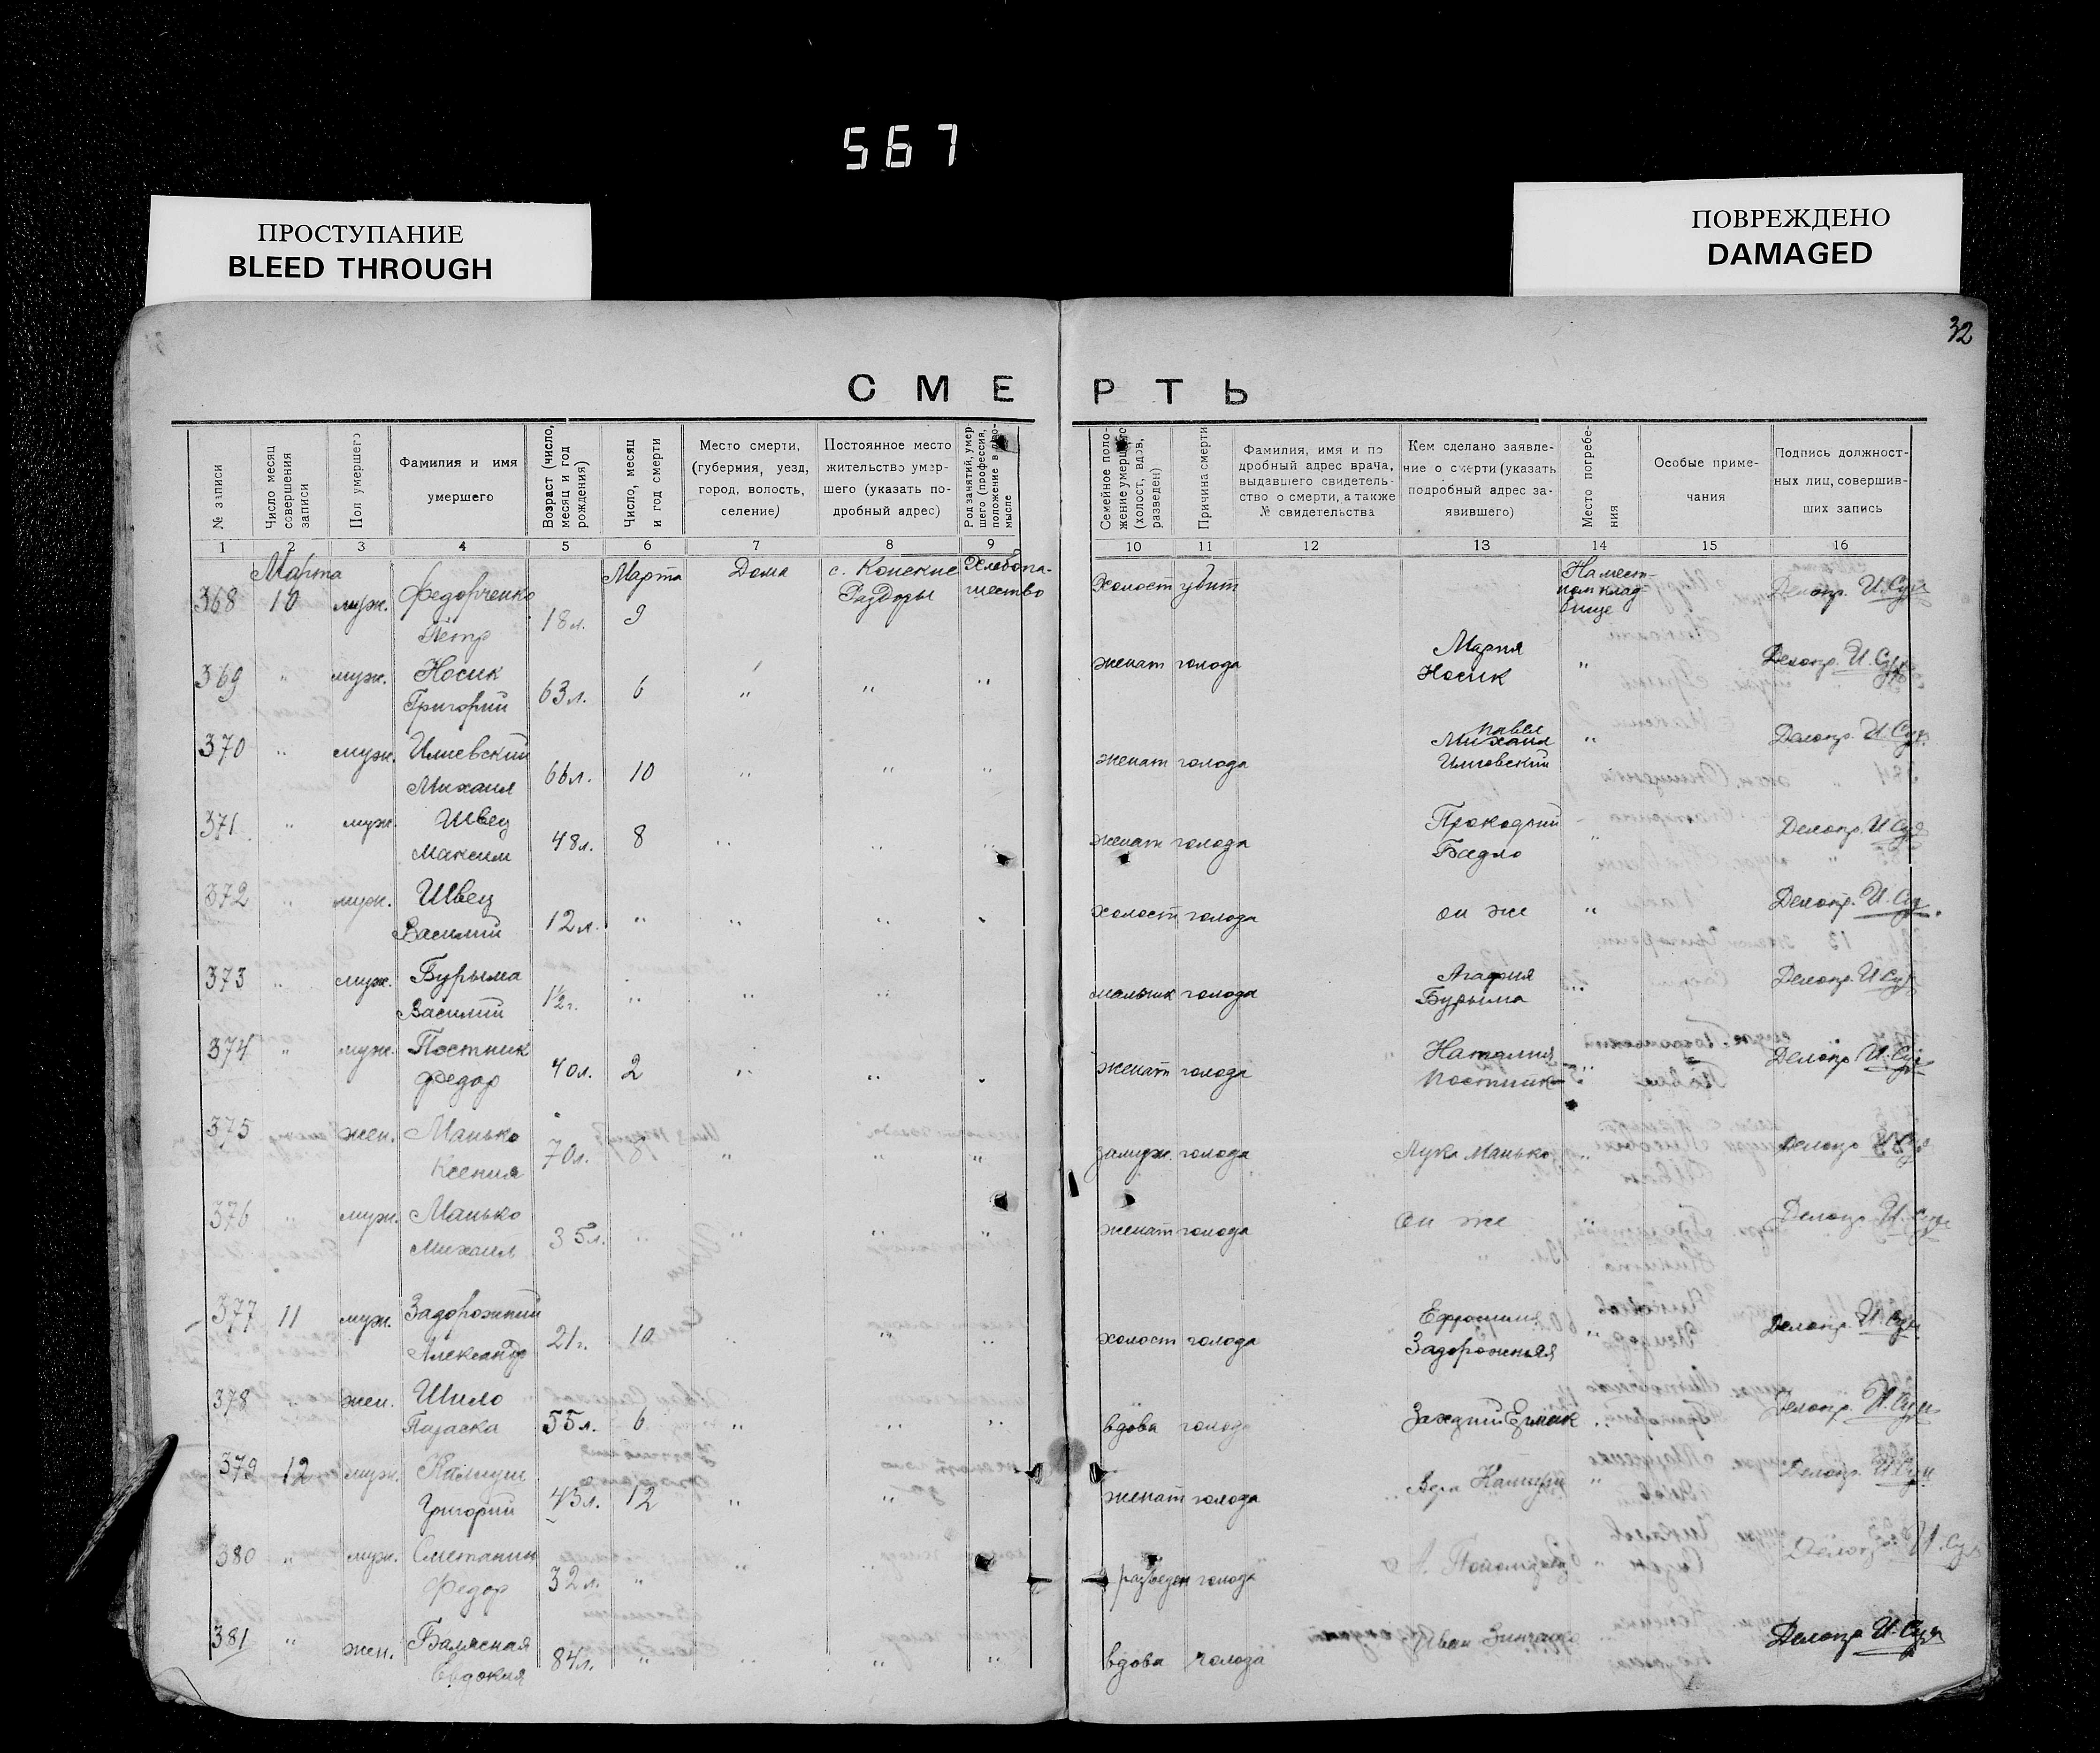 567
ПРОСТУПАНИЕ
BLEED THROUGH
ПОВРЕЖДЕНО
DAMAGED
32
СМЕРТЬ
№ записи
Число месяц совершения записи
Пол умершего
Фамилия и имя умершего
Возраст (число, месяц и год рождения)
Число, месяц и год смерти
Место смерти, (губерния, уезд, город, волость, селение)
Постоянное место жительство умершего (указать подробный адрес)
Род занятий, умершего (профессия, положение в промысле
Семейное положение умершего (холост, вдов, разведен)
Причина смерти
Фамилия, имя и подробный адрес врача, выдавшего свидетельство о смерти, а также № свидетельства
Кем сделано заявление о смерти (указать подробный адрес заявившего)
Место погребения
Особые примечания
Подпись должностных лиц, совершивших запись
1 2 3 4 5 6 7 8 9 10 11 12 13 14 15 16
368 Марта 10 муж. Федорченко Петр 18 л. Марта 9 Дома с. Конские Раздоры Хлебопашество Холост убит На местном кладбище Делопр. И. Сук
369 " муж. Носик Григорий 63 л. 6 " " " женат голода Мария Носик " Делопр. И. Сук
370 " муж. Илиевский Михаил 66 л. 10 " " " женат голода Павел Илиовский " Делопр. И. Сук
371 " муж. Швец Максим 48 л. 8 " " " женат голода Прокофий Бадло " Делопр. И. Сук
372 " муж. Швец Василий 12 л. " " " " холост голода он же " Делопр. И. Сук
373 " муж. Бурыма Василий 1½ г. " " " мальчик голода Агафия Бурыма " Делопр. И. Сук
374 " муж. Постник Федор 40 л. 2 " " " женат голода Наталия Постник " Делопр. И. Сук
375 жен. Манько Ксения 70 л. 8 " " " замуж. голода Лука Манько " Делопр. И. Сук
376 " муж. Манько Михаил 35 л. " " " " женат голода Он же " Делопр. И. Сук
377 11 муж. Задорожний Александр 21 г. 10 " " " холост голода Ефросиния Задорожняя " Делопр. И. Сук
378 " жен. Шило Параска 55 л. 6 " " " вдова голода Ермак " Делопр. И. Сук
379 12 муж. Калиуш Григорий 43 л. 12 " " женат голода Вера " Делопр. И. Сук
380 " муж. Сметанин Федор 32 л. " " " разведен голода " Делопр. И. Сук
381 " жен. Балясная Евдокия 84 л. " " " " вдова голода Иван Зинченко Делопр. И. Сук